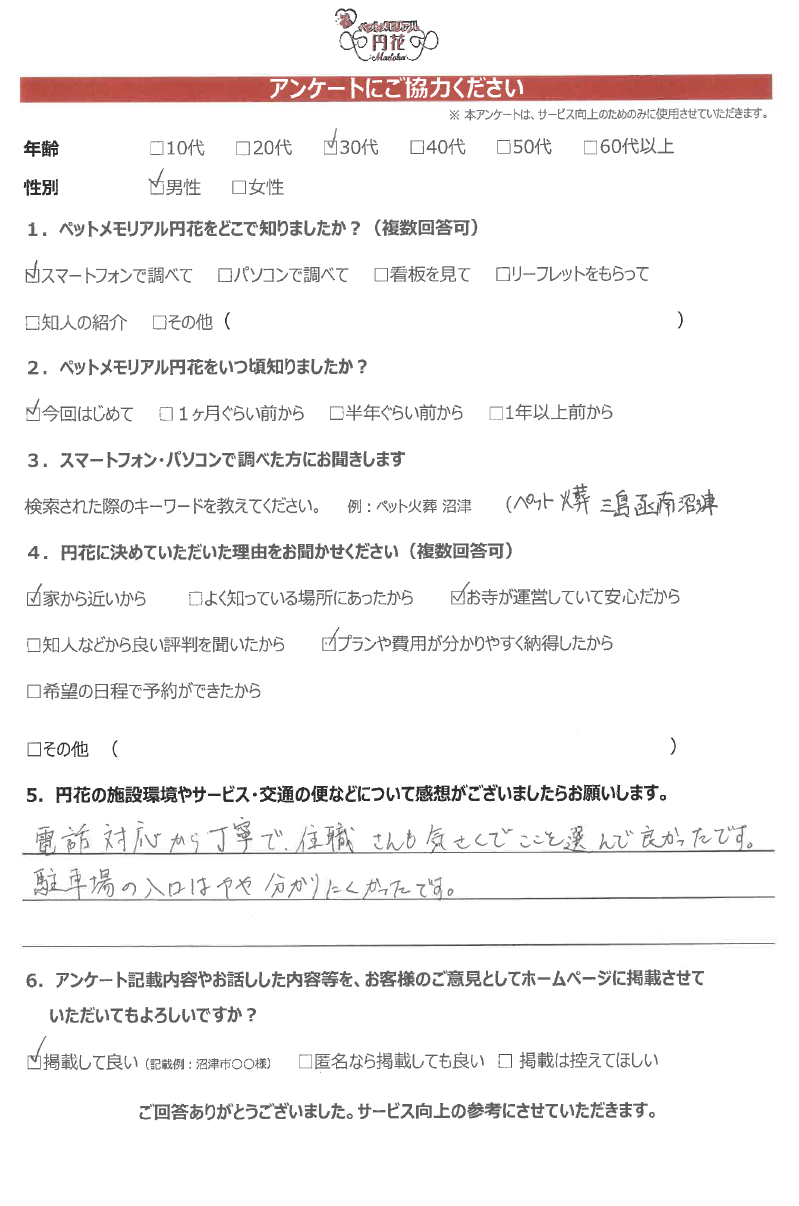 ペットメモリアル
円花
Madoka
アンケートにご協力ください
※ 本アンケートは、サービス向上のためのみに使用させていただきます。
年齢 □10代 □20代 ☑30代 □40代 □50代 □60代以上
性別 ☑男性 □女性
1．ペットメモリアル円花をどこで知りましたか？（複数回答可）
☑スマートフォンで調べて □パソコンで調べて □看板を見て □リーフレットをもらって
□知人の紹介 □その他（ ）
2．ペットメモリアル円花をいつ頃知りましたか？
☑今回はじめて □1ヶ月ぐらい前から □半年ぐらい前から □1年以上前から
3．スマートフォン・パソコンで調べた方にお聞きします
検索された際のキーワードを教えてください。 例：ペット火葬 沼津 （ペット 火葬 三島 函南 沼津
4．円花に決めていただいた理由をお聞かせください（複数回答可）
☑家から近いから □よく知っている場所にあったから ☑お寺が運営していて安心だから
□知人などから良い評判を聞いたから ☑プランや費用が分かりやすく納得したから
□希望の日程で予約ができたから
□その他 （ ）
5．円花の施設環境やサービス・交通の便などについて感想がございましたらお願いします。
電話対応から丁寧で、住職さんも気さくでここを選んで良かったです。
駐車場の入口はやや分かりにくかったです。
6．アンケート記載内容やお話しした内容等を、お客様のご意見としてホームページに掲載させて
いただいてもよろしいですか？
☑掲載して良い（記載例：沼津市〇〇様） □匿名なら掲載しても良い □ 掲載は控えてほしい
ご回答ありがとうございました。サービス向上の参考にさせていただきます。